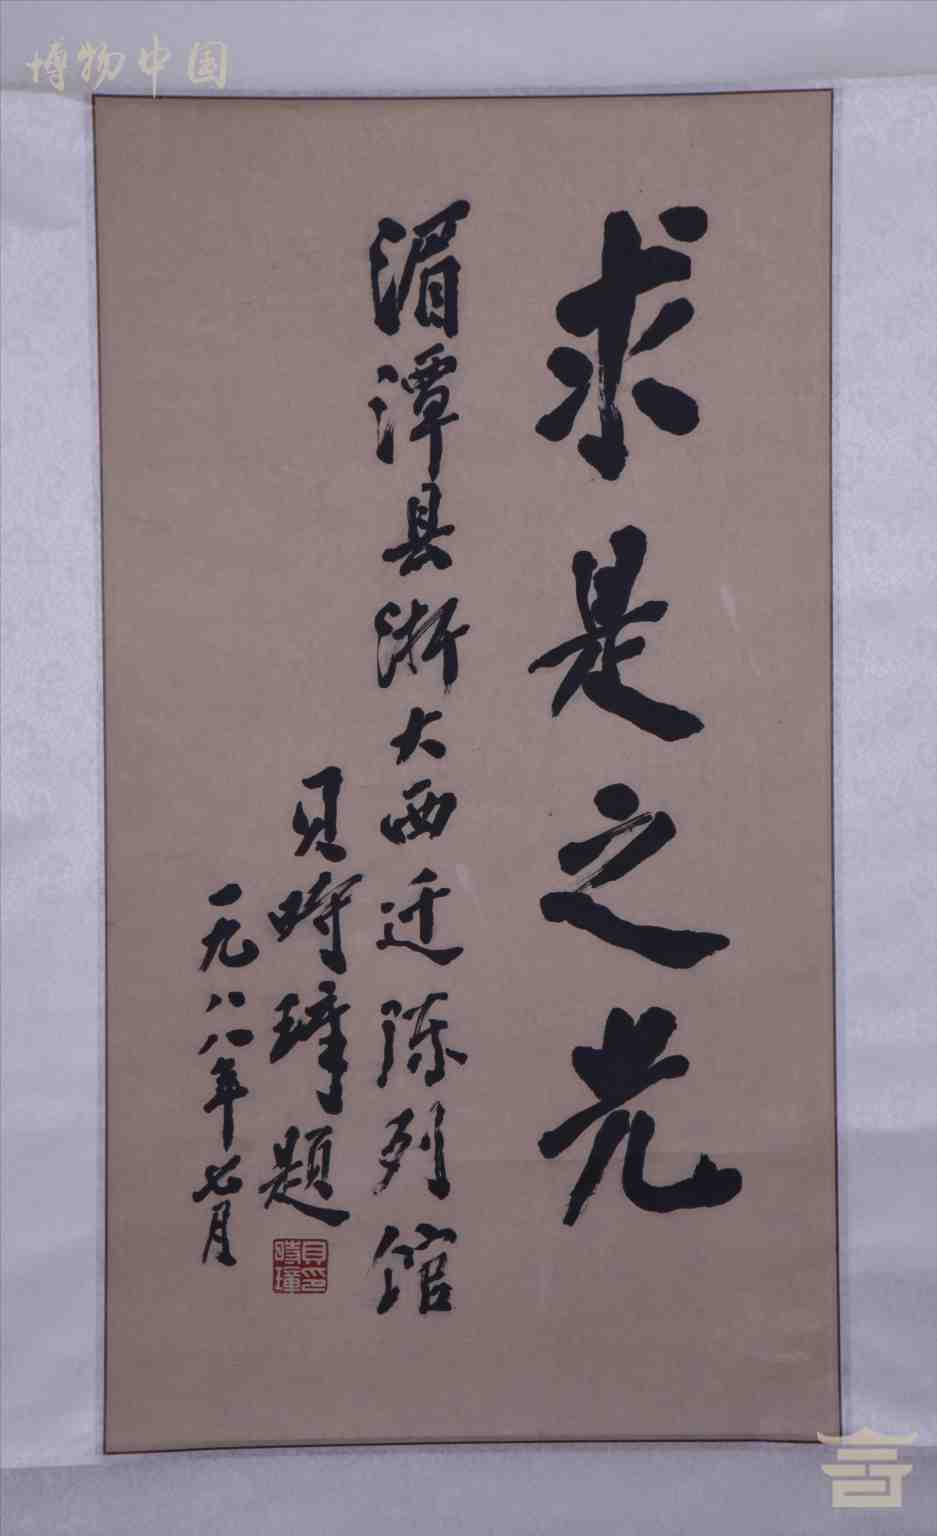 博物中国
求是之光
湄潭县浙大西迁陈列馆
贝时璋题
一九八八年七月
貝印
時璋